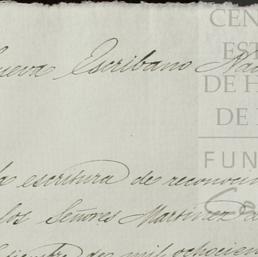 ueva Escribano Na
CEN
EST
DE H
DE
FUN
a escritura de reconoci
los Señores Martinez de
de mil ochocien